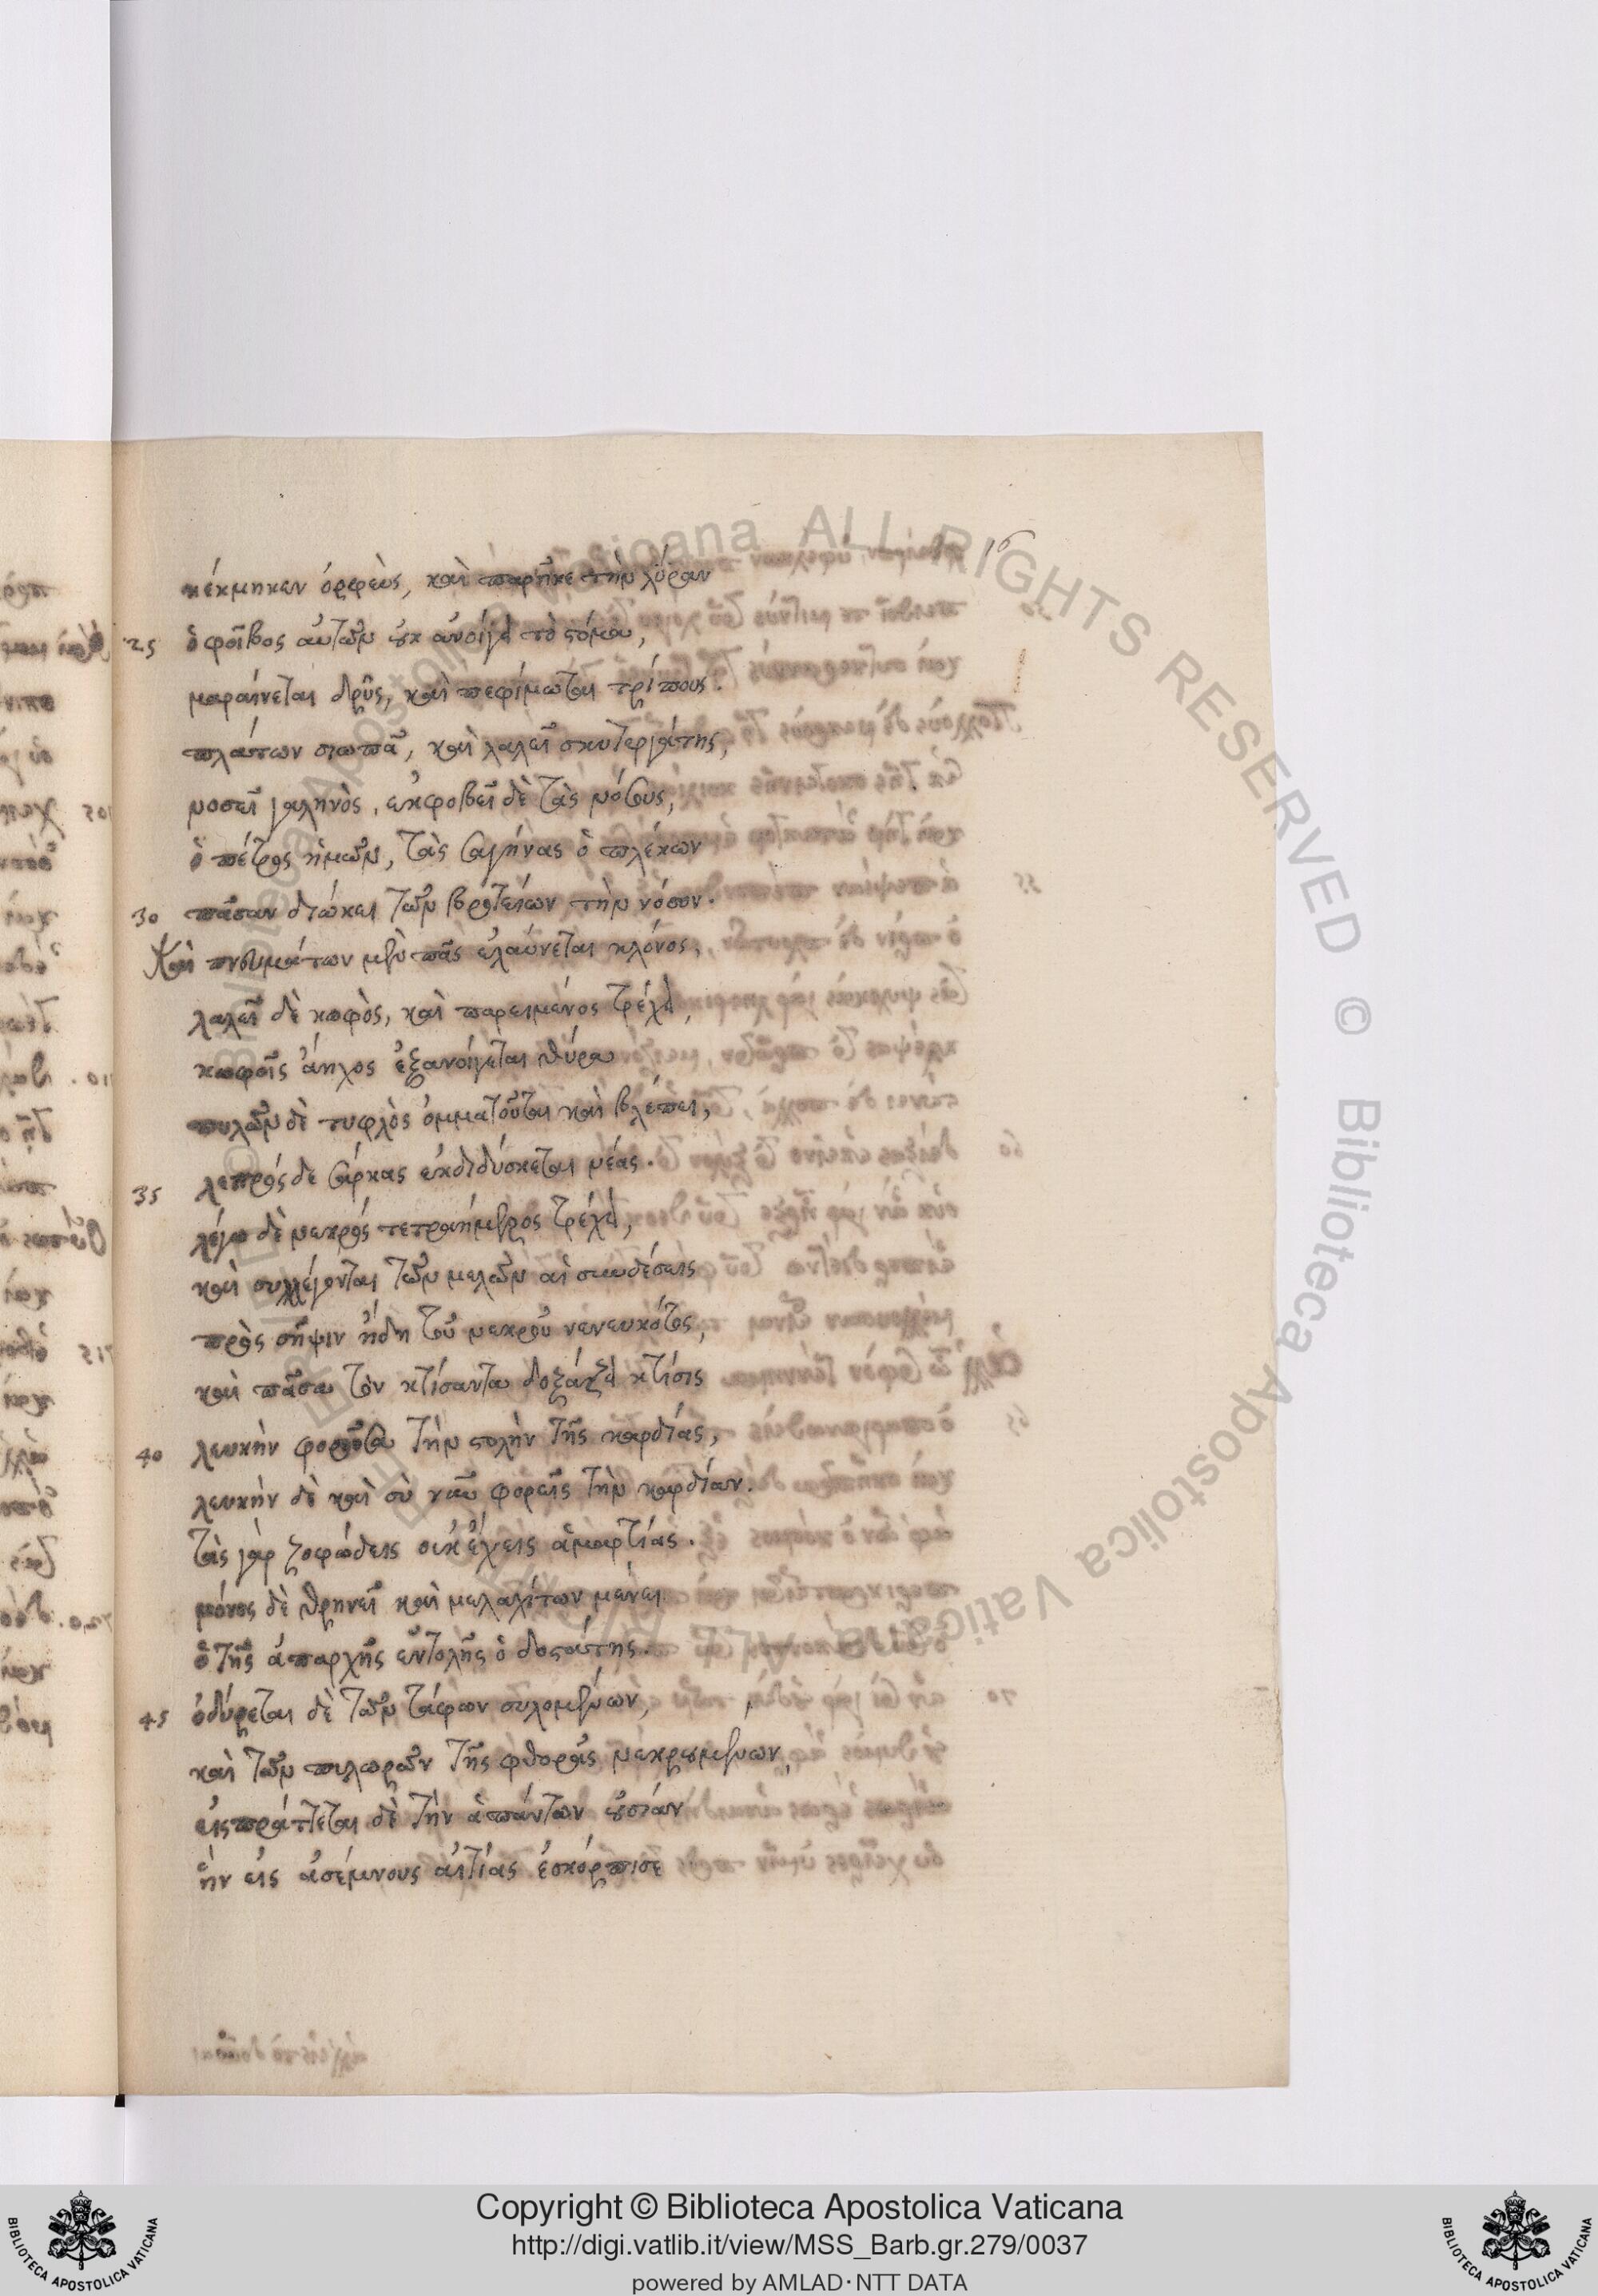 16
κέκμηκεν ὀρφεὺς, καὶ παρῆκε τὴν λύραν
25 ὁ φοῖβος αὐτῶν οὐκ ἀνοίγει τὸ στόμα,
μαραίνεται δρῦς, καὶ πεφίμωται τρίπους.
πλάτων σιωπᾶ, καὶ λαλεῖ σκυτεργάτης,
νοσεῖ γαληνὸς, ἐκφοβεῖ δὲ τὰς νόσους,
ὁ πέτρος ἡμῶν, τὰς σαγήνας ὁ πλέκων
30 πᾶσαν διώκει τῶν βροτείων τὴν νόσον.
Καὶ πνευμάτων μὲν πᾶς ἐλαύνεται κλόνος,
λαλεῖ δὲ κωφὸς, καὶ παρειμένος τρέχει,
κωφοῖς ἄηχος ἐξανοίγεται θύρα
πυλῶν δὲ τυφλὸς ὀμματοῦται καὶ βλέπει,
35 λεπρός δε σάρκας ἐκδιδύσκεται νέας.
λέγω δὲ νεκρός τετραήμερος τρέχει,
καὶ συλλέγονται τῶν μελῶν αἱ συνδέσεις
πρὸς σῆψιν ἤδη τοῦ νεκροῦ νενευκότος,
καὶ πᾶσα τὸν κτίσαντα δοξάζει κτίσις
40 λευκὴν φοροῦσα τὴν στολὴν τῆς καρδίας,
λευκὴν δὲ καὶ σὺ νῦν φορεῖς τὴν καρδίαν.
τὰς γὰρ ζοφώδεις οὐκ ἔχεις ἁμαρτίας.
μόνος δὲ θρηνεῖ καὶ μελαχίτων μένει
ὁ τῆς ἀπαρχῆς ἐντολῆς ὁ
45 ὀδύρεται δὲ τῶν τάφων συλομένων,
καὶ τῶν πυλωρῶν τῆς φθορᾶς νεκρουμένων,
εἰσπράττεται δὲ τὴν ἁπάντων οὐσίαν
ἣν εἰς ἀσέμνους αἰτίας ἐσκόρπισε
Copyright © Biblioteca Apostolica Vaticana
http://digi.vatlib.it/view/MSS_Barb.gr.279/0037
powered by AMLAD·NTT DATA
BIBLIOTECA APOSTOLICA VATICANA
BIBLIOTECA APOSTOLICA VATICANA